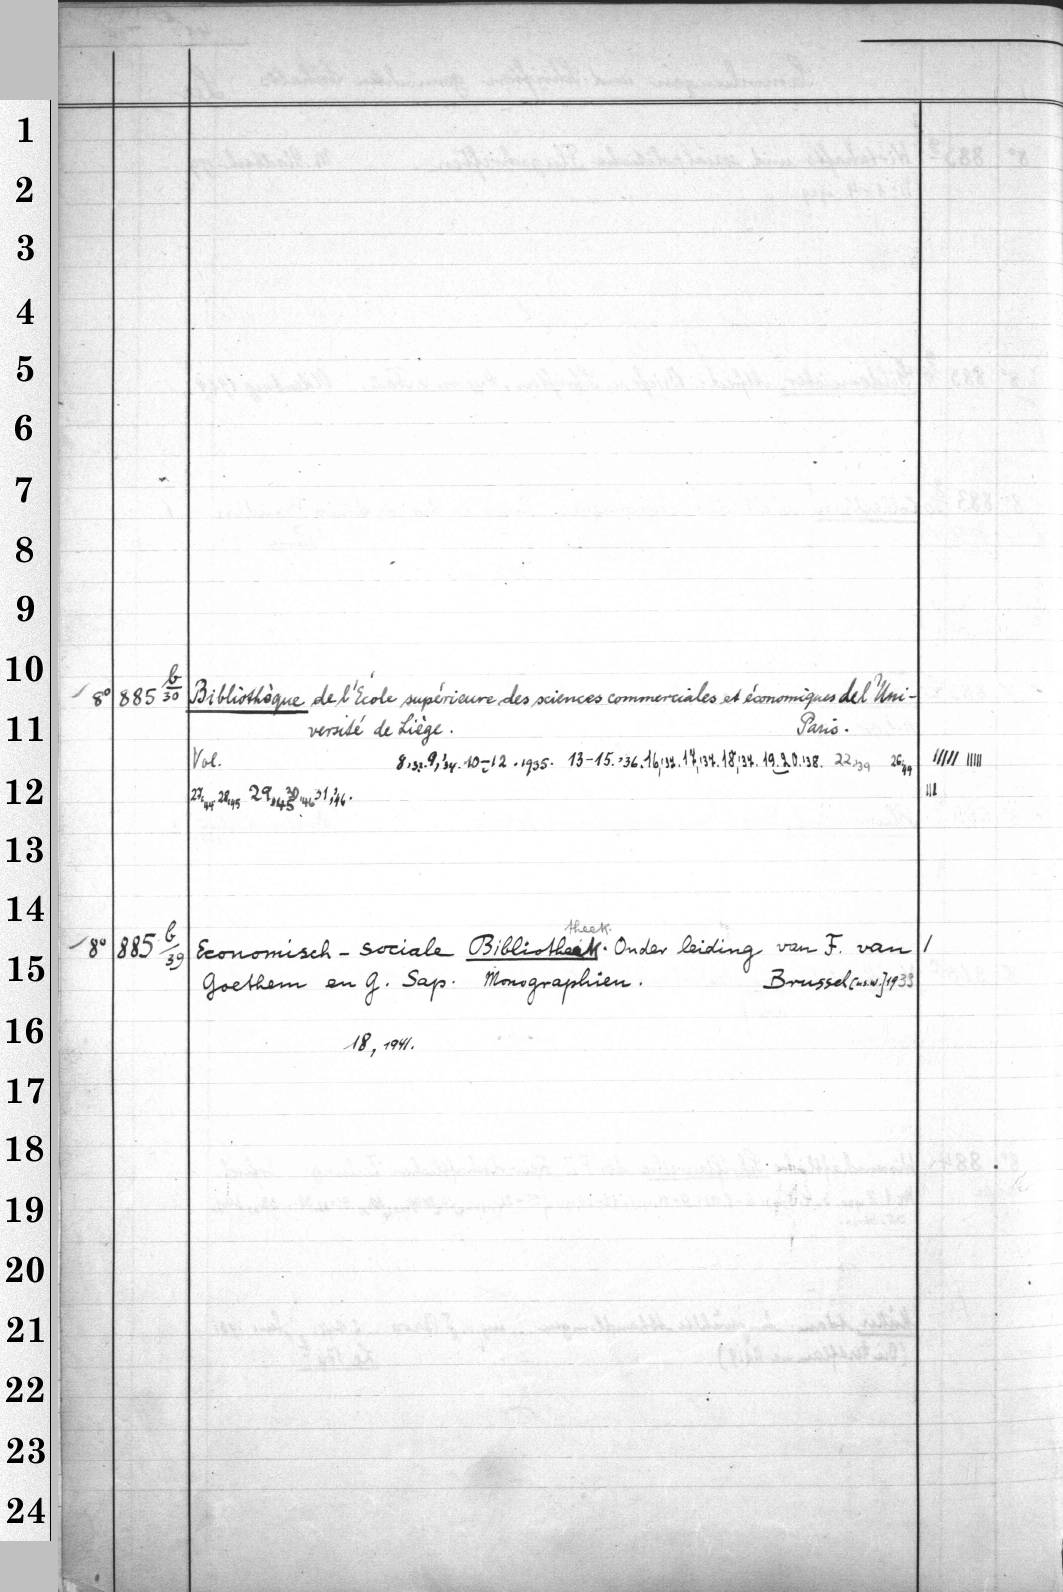 1
2
3
4
5
6
7
8
9
10
8° 885 b/30 Bibliothèque de l'École supérieure des sciences commerciales et économiques de l'Uni-
11
versité de Liège. Paris.
Vol. 8,'33. 9,'34. 10-12.1935. 13-15.'36. 16,'37. 17,'37. 18,'37. 19.20.'38. 22,'39 26,'49
12
27,'44 28,'45 29,'45 30,'46 31,'46.
13
14
theek.
8° 885 b/39 Economisch-sociale Bibliotheek. Onder leiding van F. van
15
Goethem en G. Sap. Monographiën. Brussel [usw.] 1933
16
18, 1941.
17
18
19
20
21
22
23
24